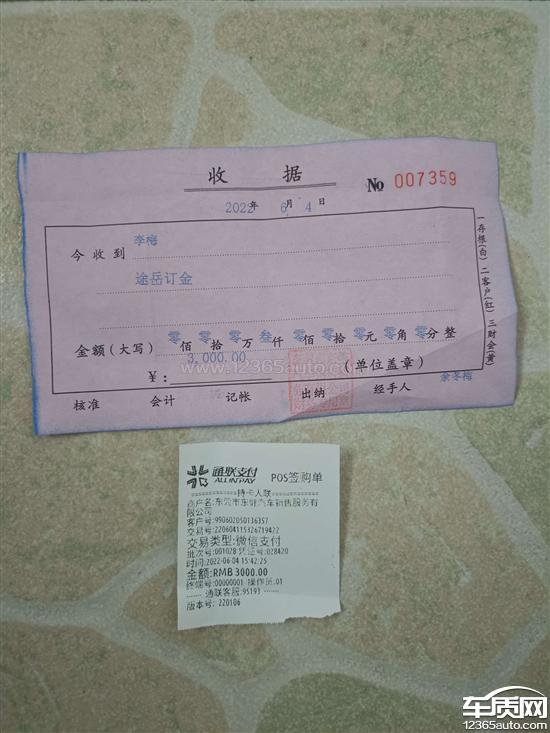 收 据
No 007359
2022年 6月 4日
今收到 李梅
途岳订金
金额(大写) 零佰零拾零万叁仟零佰零拾零元零角零分整
¥: 3,000.00 (单位盖章)
核准 会计 记帐 出纳 经手人 余冬梅
一存根(白)二客户(红)三财会(黄)
www.12365auto.com
通联支付 POS签购单
ALLINPAY
持卡人联
商户名:东莞市东健汽车销售服务有
限公司
客户号:990602050136357
交易号:220604115326719422
交易类型:微信支付
批次号:001028 凭证号:028420
时间:2022-06-04 15:42:25
金额:RMB 3000.00
终端号:00000001 操作员:01
------ 通联客服:95193 ------
版本号: 220106
车质网
12365auto.com